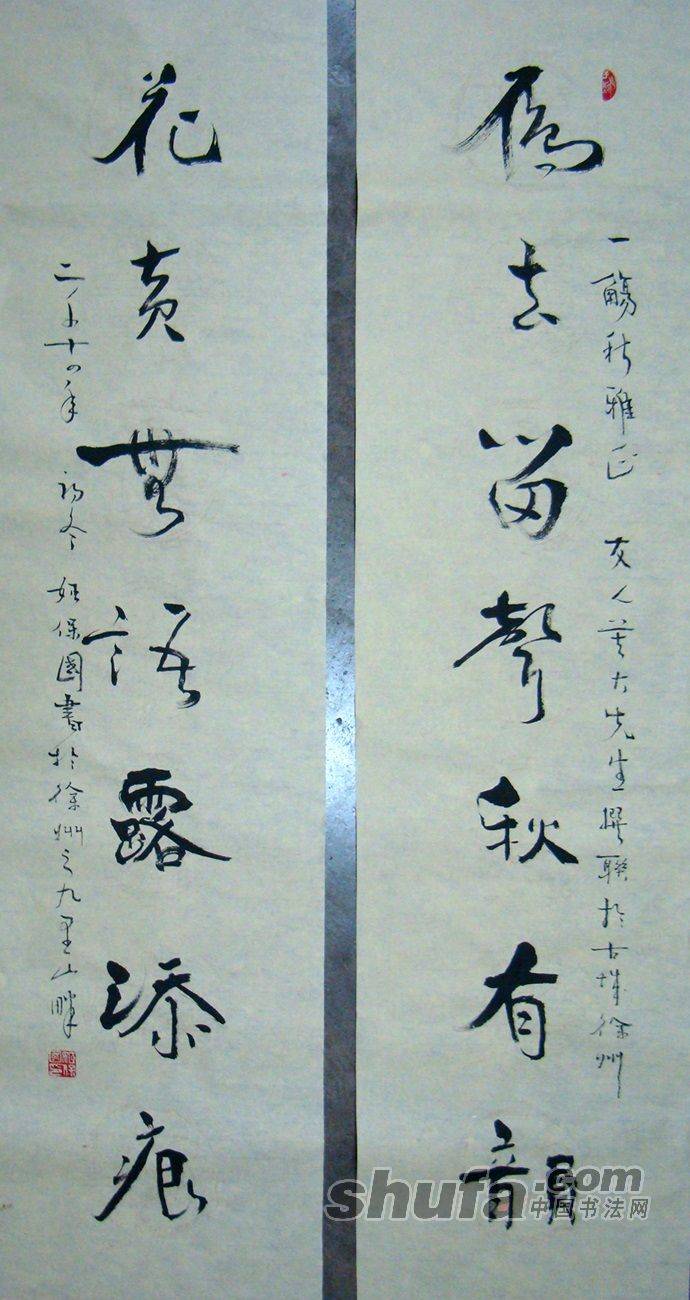 雁去留聲秋有韻
一觴秋雅正 友人黃大先生撰聯於古城徐州
花黃無語露添痕
二千十四年 初冬 姬保國書於徐州之九里山畔
shufa.com
中国书法网